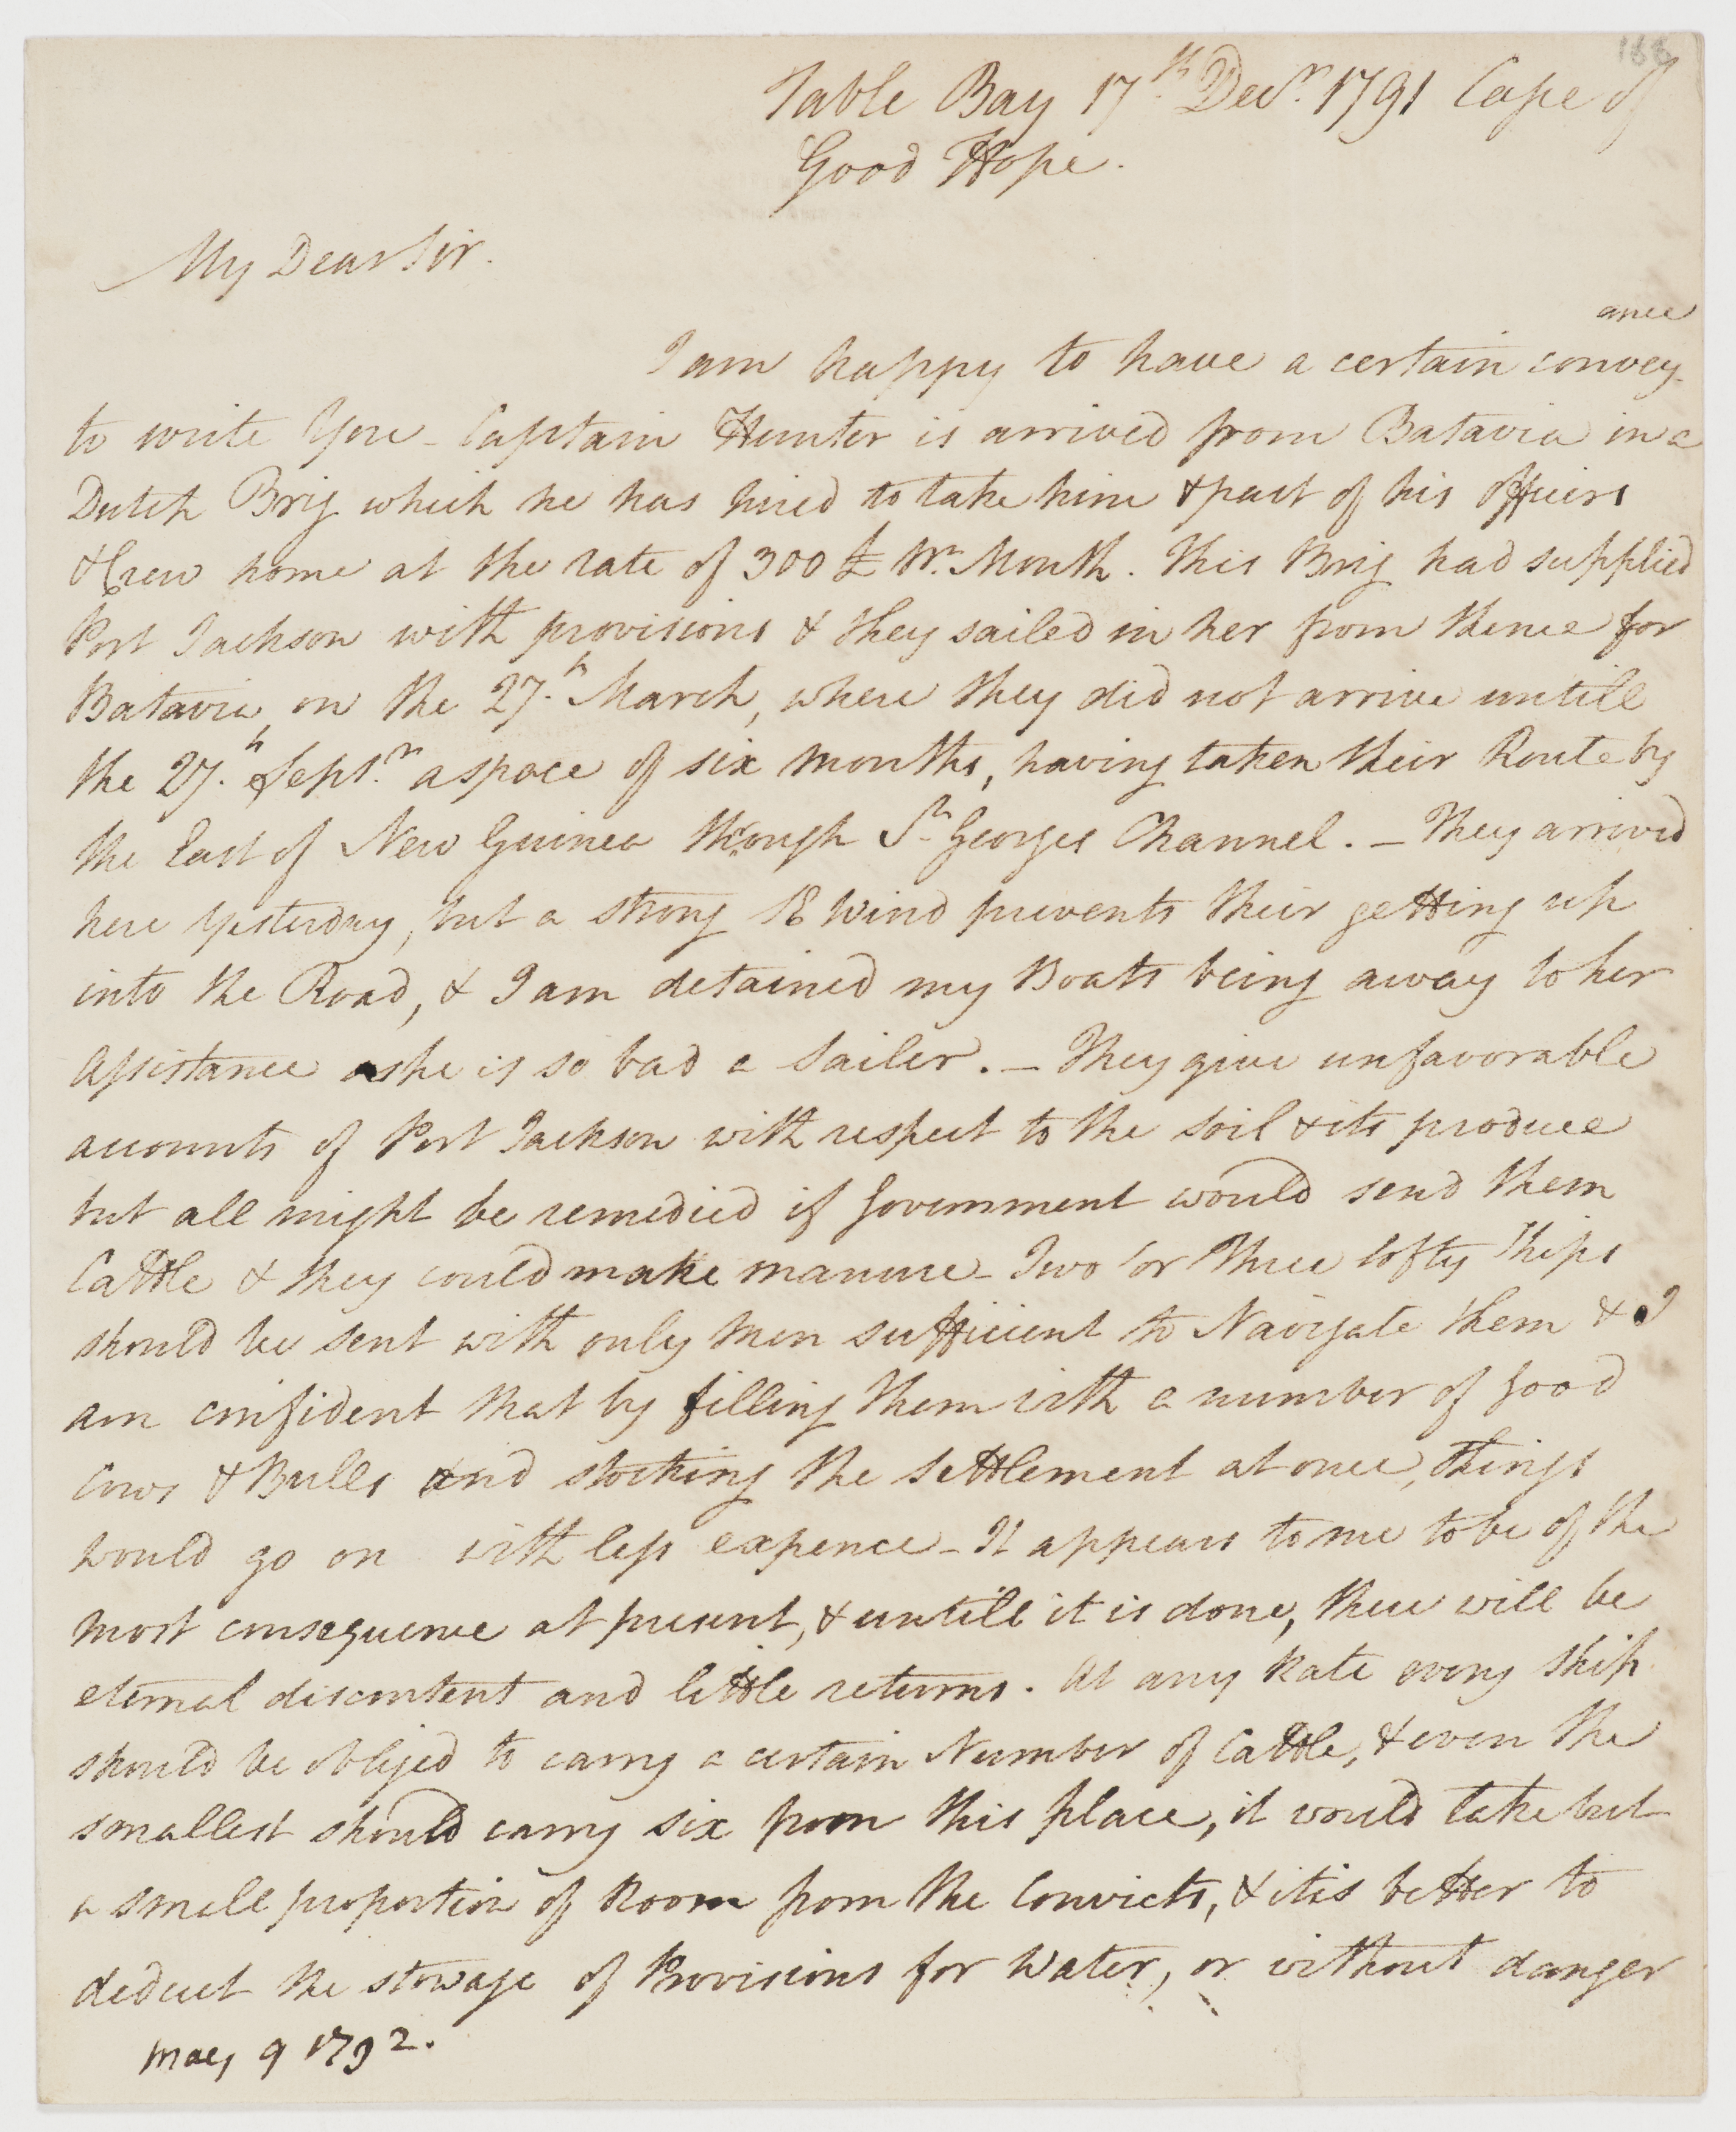 188
Table Bay 17th Decr. 1791 Cape of
Good Hope.
My Dear Sir.
ance
I am happy to have a certain convey-
to write You - Captain Hunter is arrived from Batavia in a
Dutch Brig which he has hired to take him & part of his officers
& Crew home at the rate of 300 £ Pr. Month. This Brig had supplied
Port Jackson with provisions & they sailed in her from thence for
Batavia, on the 27.h March, where they did not arrive untill
the 27.h Septr. a space of six months, having taken their Route by
the East of New Guinea through St. Georges Channel. - They arrived
here yesterday, but a strong SE Wind prevents their getting up
into the Road, & I am detained my Boats being away to her
Assistance as she is so bad a Sailer. - They give unfavorable
accounts of Port Jackson with respect to the soil & its produce
but all might be remedied if Government would send them
Cattle & they could make manure - Two or Three lofty Ships
should be sent with only Men sufficient to Navigate them & I
am confident that by filling them with a number of good
Cows & Bulls and stocking the Settlement at once, things
would go on with less expence - It appears to me to be of the
most consequence at present, & untill it is done, there will be
eternal discontent and little returns. At any Rate every Ship
should be obliged to carry a certain Number of Cattle, & even the
smallest should carry six from this place, it would take but
a small proportion of Room from the Convicts, & it is better to
deduct the stowage of Provisions for Water, or without danger
May 9 1792.